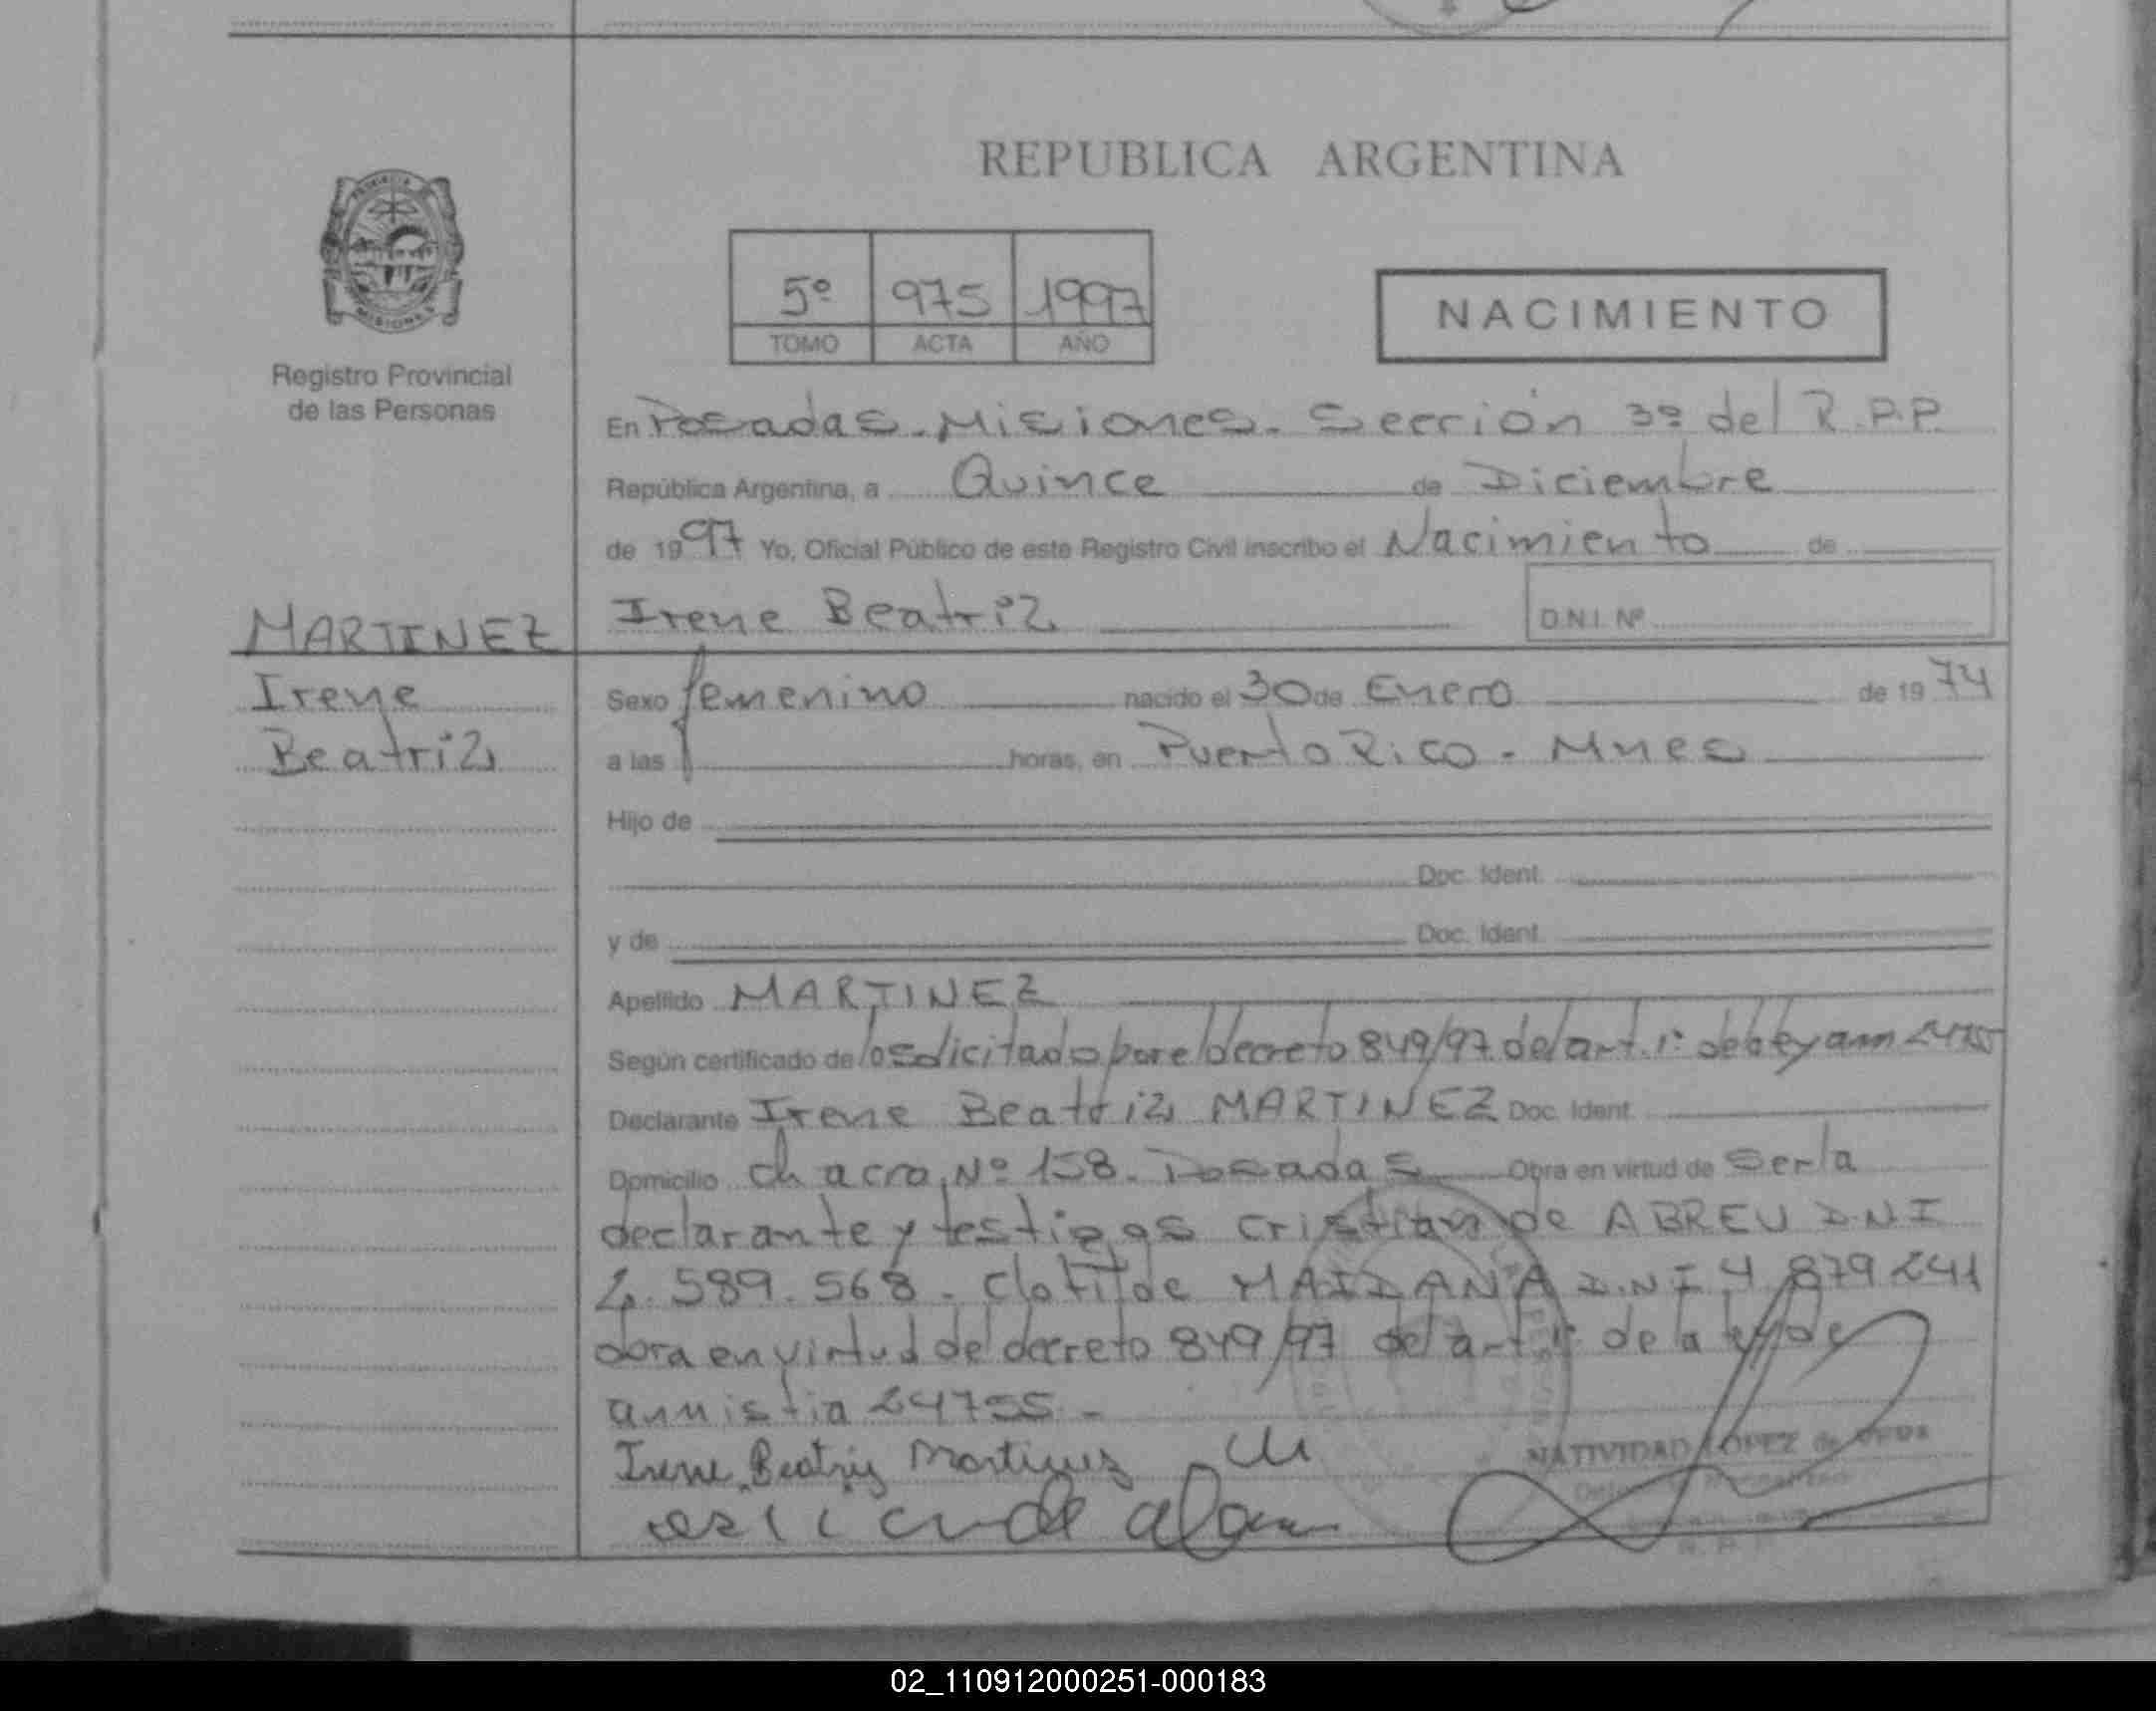 REPUBLICA ARGENTINA
PROVINCIA
MISIONES
Registro Provincial
de las Personas
5º 975 1997
TOMO ACTA AÑO
NACIMIENTO
En Posadas. Misiones. Sección 3º del R.P.P.
República Argentina, a Quince de Diciembre
de 1997 Yo, Oficial Público de este Registro Civil inscribo el Nacimiento de
MARTINEZ
Irene
Beatriz
Irene Beatriz D.N.I. Nº
Sexo femenino nacido el 30 de Enero de 1974
a las horas, en Puerto Rico - Mnes
Hijo de
Doc. Ident.
y de Doc. Ident.
Apellido MARTINEZ
Según certificado de lo solicitado por el decreto 849/97 del art. 1º de la ley 
Declarante Irene Beatriz MARTINEZ Doc. Ident.
Domicilio chacra Nº 158. Posadas Obra en virtud de Ser la
declarante y testigos Cristian de ABREU D.N.I
589.568 - Clotilde MAIDANA D.N.I 4.879241
obra en virtud del decreto 849/97 del art 1º de la ley de
amnistia 24755 -
Irene Beatriz Martinez
NATIVIDAD LOPEZ de
02_110912000251-000183